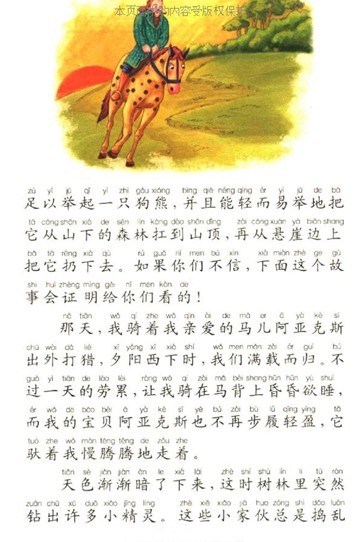 本页 的内容受版权保
zú yǐ jǔ qǐ yì zhī gǒu xióng bìng qiě néng qīng ér yì jǔ de bǎ
足以举起一只狗熊，并且能轻而易举地把
tā cóng shān xià de sēn lín káng dào shān dǐng zài cóng xuán yá biān shang
它从山下的森林扛到山顶，再从悬崖边上
bǎ tā rēng xià qù rú guǒ nǐ men bú xìn xià miàn zhè ge gù
把它扔下去。如果你们不信，下面这个故
shi huì zhèng míng gěi nǐ men kàn de
事会证明给你们看的！
nà tiān wǒ qí zhe wǒ qīn ài de mǎ ér ā yà kè sī
那天，我骑着我亲爱的马儿阿亚克斯
chū wài dǎ liè xī yáng xī xià shí wǒ men mǎn zài ér guī bú
出外打猎，夕阳西下时，我们满载而归。不
guò yì tiān de láo lèi ràng wǒ qí zài mǎ bèi shang hūn hūn yù shuì
过一天的劳累，让我骑在马背上昏昏欲睡，
ér wǒ de bǎo bèi ā yà kè sī yě bú zài bù lǚ qīng yíng tā
而我的宝贝阿亚克斯也不再步履轻盈，它
tuó zhe wǒ màn tēng tēng de zǒu zhe
驮着我慢腾腾地走着。
tiān sè jiàn jiàn àn le xià lái zhè shí shù lín li tū rán
天色渐渐暗了下来，这时树林里突然
zuān chū xǔ duō xiǎo jīng líng zhè xiē xiǎo jiā huo zǒng shì dǎo luàn
钻出许多小精灵。这些小家伙总是捣乱